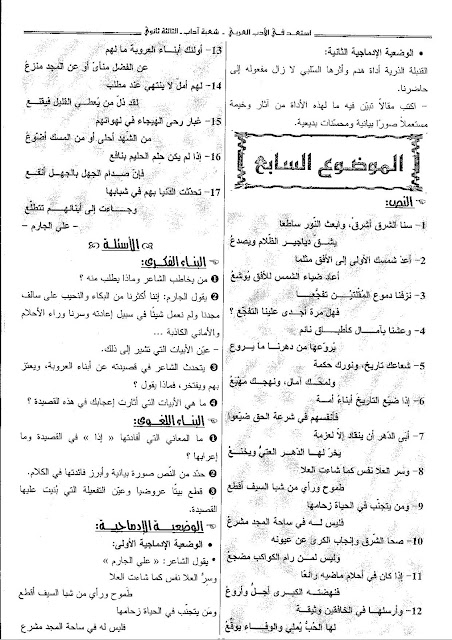 استعد في الأدب العربي - شعبة آداب - الثالثة ثانوي
● الوضعية الإدماجية الثانية:
القنبلة الذرية أداة هدم وأثرها السلبي لا زال مفعوله إلى
حاضرنا.
- اكتب مقالاً تبيّن فيه ما لهذه الأداة من آثار وخيمة
مستعملاً صورًا بيانية ومحسنات بديعية.
الموضوع السابع
النص:
1- سنا الشرق أشرقْ، وابعث النّور ساطعا
يشق دياجير الظّلام ويصدعُ
2- أعدْ شمسك الأولى إلى الأفق مثلما
أعاد ضياء الشمس للأفق يُوشَعُ
3- نزفنا دموع المقلتين تفجّعا
فهل مرة أجدى علينا التفجّع ؟
4- وعشنا بآمال كأطياف نائم
يُروّعها من دهرنا ما يروع
5- شعاعك تاريخ، ونورك حكمة
ولمحك آمال، ونهجك مهْيَعُ
6- إذا ضيّع التاريخ أبناءُ أمة
فأنفسهم في شرعة الحق ضيّعوا
7- أبى الدّهر أن ينقاد إلاّ لعزمة
يخرّ لها الدّهر العتيّ ويخنعُ
8- وسر العلا نفس كما شاءت العلا
طموح ورأي من شبا السيف أقطع
9- ومن يتجنّب في الحياة زحامها
فليس له في ساحة المجد مشرعُ
10- صحا الشرق وانجاب الكرى عن عيونه
وليس لمن رام الكواكب مضجع
11- إذا كان في أحلام ماضيه رائعًا
فنهضته الكبرى أجلّ وأروعُ
12- وأرسلها في الخافقين وثيقة
لها الحبّ يُملي والوفاء يوقّعُ
13- أولئك أبناء العروبة ما لهم
عن الفضل منأى أو عن المجد منزعُ
14- لهم أملٌ لا ينتهي عند مطلب
لقد ذلّ من يُعطي القليل فيقنعُ
15- غبار رحى الهيجاء في لهواتهم
من الشّهد أحلى أو من المسك أضْوَعُ
16- إذا لم يكن حلم الحليم بنافع
فإنّ صدام الجهل بالجهل أنفعُ
17- تحدّثت الدّنيا بهم في شبابها
وجاءت إلى أبنائهم تتطلّع
- علي الجارم -
الأسئلة
البناء الفكري:
❶ من يخاطب الشاعر وماذا يطلب منه ؟
❷ يقول الجارم: إننا أكثرنا من البكاء والنحيب على سالف
مجدنا ولم نعمل شيئًا في سبيل إعادته وسرنا وراء الأحلام
والأماني الكاذبة ...
- عيّن الأبيات التي تشير إلى ذلك.
❸ يتحدث الشاعر في قصيدته عن أبناء العروبة، ويعتز
بهم ويفتخر، فماذا يقول ؟
❹ ما هي الأبيات التي أثارت إعجابك في هذه القصيدة ؟
البناء اللغوي:
❶ ما المعاني التي أفادتها « إذا » في القصيدة وما
إعرابها ؟
❷ حدّد من النّص صورة بيانية وأبرز فائدتها في الكلام.
❸ قطع بيتًا عروضيا وعيّن التفعيلة التي بُنيت عليها
القصيدة.
الوضعية الإدماجية:
● الوضعية الإدماجية الأولى:
- يقول الشاعر: « علي الجارم »
وسرُّ العلا نفس كما شاءت العلا
طموح ورأي من شبا السيف أقطع
ومن يتجنّب في الحياة زحامها
فليس له في ساحة المجد مشرع